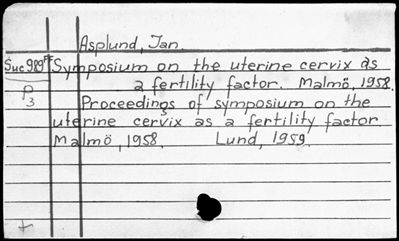 Asplund, Jan.
Suc 989 Symposium on the uterine cervix as
p a fertility factor. Malmö, 1958.
3 Proceedings of symposium on the
uterine cervix as a fertility factor
Malmö, 1958. Lund, 1959.
+